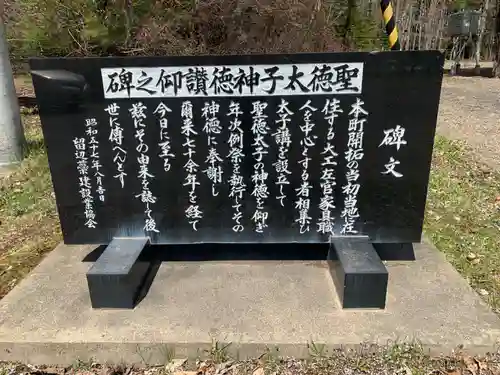 聖徳太子神徳讃仰之碑
碑文
本町開拓の当初当地に在
住する大工左官家具職
人を中心とする者相集ひ
太子講を設立して
聖徳太子の神徳を仰ぎ
年次例祭を執行してその
神徳に奉謝し
爾来七十余年を経て
今日に至る
茲にその由来を誌して
世に傳へんとす
昭和五十七年八月吉日
留辺蘂建設業協会